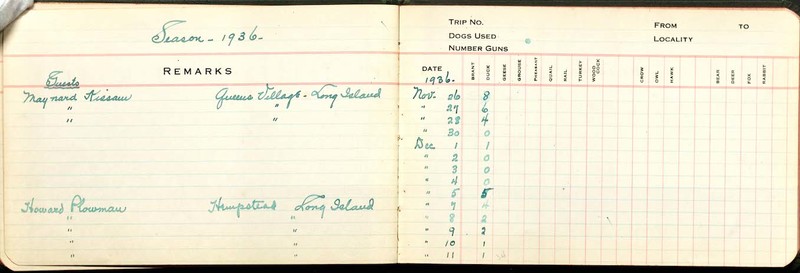 Season - 1936 -
REMARKS
Guests
Maynard Kissam Queens Village - Long Island
" "
" "
Howard Plowman Hempstead, Long Island
" "
" "
" "
" "
TRIP NO. FROM TO
DOGS USED LOCALITY
NUMBER GUNS
DATE BRANT DUCK GEESE GROUSE PHEASANT QUAIL RAIL TURKEY WOOD COCK CROW OWL HAWK BEAR DEER FOX RABBIT
1936.
Nov. 26 8
" 27 6
" 28 4
" 30 0
Dec 1 1
" 2 0
" 3 0
" 4 0
" 5 5
" 7 4
" 8 2
" 9 2
" 10 1
" 11 1